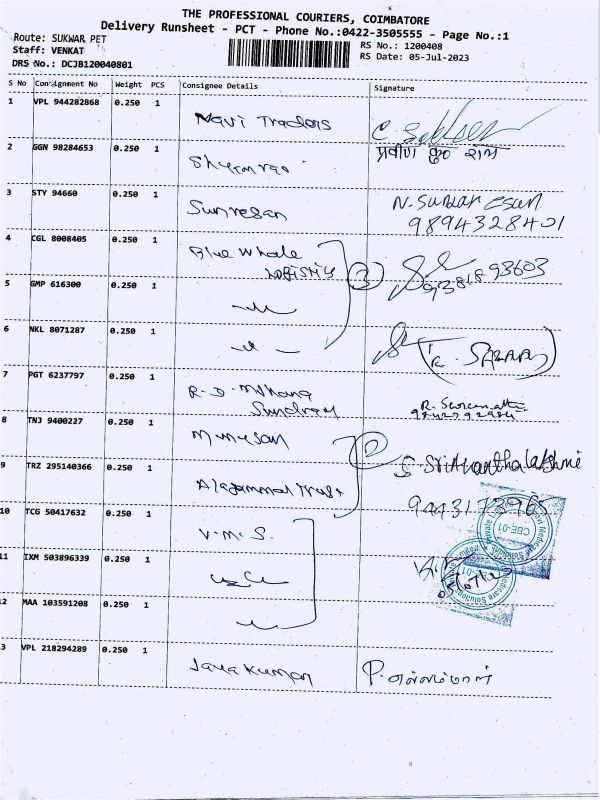 THE PROFESSIONAL COURIERS, COIMBATORE
Delivery Runsheet - PCT - Phone No.:0422-3505555 - Page No.:1
Route: SUKWAR PET
Staff: VENKAT
DRS No.: DCJB120040801
RS No.: 1200408
RS Date: 05-Jul-2023
S No Consignment No Weight PCS Consignee Details Signature
1 VPL 944282868 0.250 1 Mavi Traders
2 GGN 98284653 0.250 1 Shyamrao
3 STY 94660 0.250 1 Sunresan N. Sundar esan
9894328401
4 CGL 8008405 0.250 1 Blue Whale
Logistics 3
5 GMP 616300 0.250 1
6 NKL 8071287 0.250 1
7 PGT 6237797 0.250 1 R-D. Mohana
Sundram
8 TNJ 9400227 0.250 1 Murugesan
9 TRZ 295140366 0.250 1 Alagammal Trust S. Srithanthalakshmi
9443173965
10 TCG 50417632 0.250 1 V.M.S.
11 IXM 503896339 0.250 1
12 MAA 103591208 0.250 1
3 VPL 218294289 0.250 1 Jaya Kumar P.
CBE-01